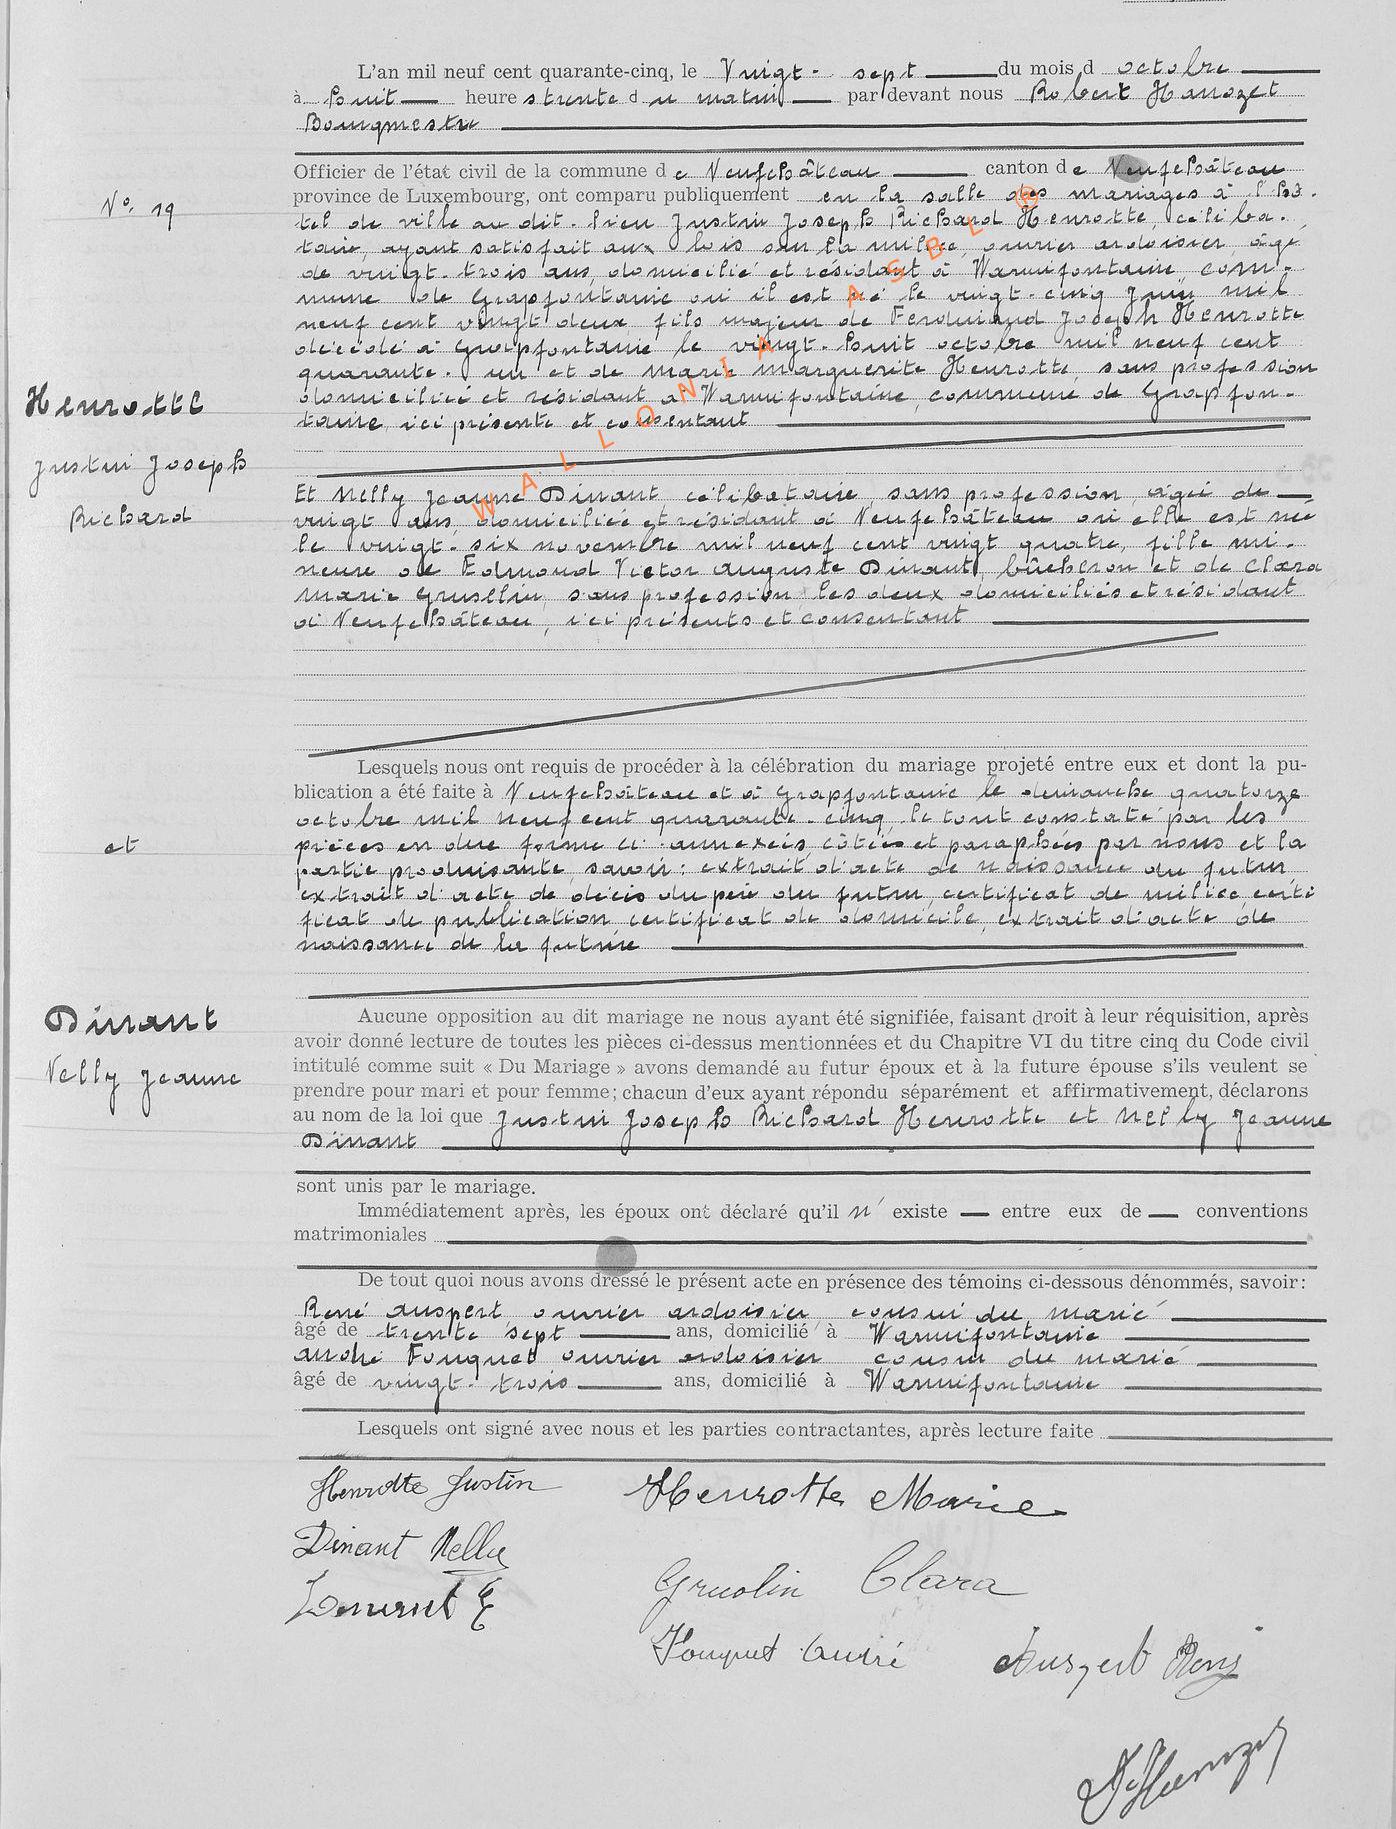 L'an mil neuf cent quarante-cinq, le Vingt-sept du mois d octobre
à huit heure s trente d u matin par devant nous Robert Hanozet
Bourgmestre
Officier de l'état civil de la commune d e Neufchâteau canton d e Neufchâteau
province de Luxembourg, ont comparu publiquement en la salle des mariages à l'hô-
N° 19
tel de ville au dit-lieu Justin Joseph Richard Henrotte, céliba-
taire, ayant satisfait aux lois sur la milice, ouvrier ardoisier âgé
de vingt-trois ans, domicilié et résidant à Warmifontaine, com-
mune de Grapfontaine où il est né le vingt-cinq Juin mil
neuf cent vingt deux fils majeur de Ferdinand Joseph Henrotte
décédé à Grapfontaine le vingt-huit octobre mil neuf cent
quarante-un et de Marie Marguerite Henrotte, sans profession
domiciliée et résidant à Warmifontaine, commune de Grapfon-
taine, ici présente et consentant
WALLONIA ASBL ®
Henrotte
Justin Joseph
Richard
Et Nelly Jeanne Dinant célibataire, sans profession, âgée de
vingt ans, domiciliée et résidant à Neufchâteau où elle est née
le vingt-six novembre mil neuf cent vingt quatre, fille mi-
neure de Edmond Victor Auguste Dinant, bûcheron et de Clara
Marie Gruslin, sans profession les deux domiciliés et résidant
à Neufchâteau, ici présents et consentant
Lesquels nous ont requis de procéder à la célébration du mariage projeté entre eux et dont la pu-
blication a été faite à Neufchâteau et à Grapfontaine le dimanche quatorze
octobre mil neuf cent quarante-cinq, le tout constaté par les
et
pièces en due forme ci-annexées, côtées et paraphées par nous et la
partie produisante, savoir: extrait d'acte de naissance du futur
extrait d'acte de décès du père du futur, certificat de milice, certi
ficat de publication, certificat de domicile, extrait d'acte de
naissance de la future
Dinant
Nelly Jeanne
Aucune opposition au dit mariage ne nous ayant été signifiée, faisant droit à leur réquisition, après
avoir donné lecture de toutes les pièces ci-dessus mentionnées et du Chapitre VI du titre cinq du Code civil
intitulé comme suit « Du Mariage » avons demandé au futur époux et à la future épouse s'ils veulent se
prendre pour mari et pour femme; chacun d'eux ayant répondu séparément et affirmativement, déclarons
au nom de la loi que Justin Joseph Richard Henrotte et Nelly Jeanne
Dinant
sont unis par le mariage.
Immédiatement après, les époux ont déclaré qu'il n' existe entre eux de conventions
matrimoniales
De tout quoi nous avons dressé le présent acte en présence des témoins ci-dessous dénommés, savoir:
René Auspert, ouvrier ardoisier, cousin du marié
âgé de trente sept ans, domicilié à Warmifontaine
André Fouquet ouvrier ardoisier cousin du marié
âgé de vingt-trois ans, domicilié à Warmifontaine
Lesquels ont signé avec nous et les parties contractantes, après lecture faite
Henrotte Justin Henrotte Marie
Dinant Nelly
Gruslin Clara
Fouquet André Auspert René